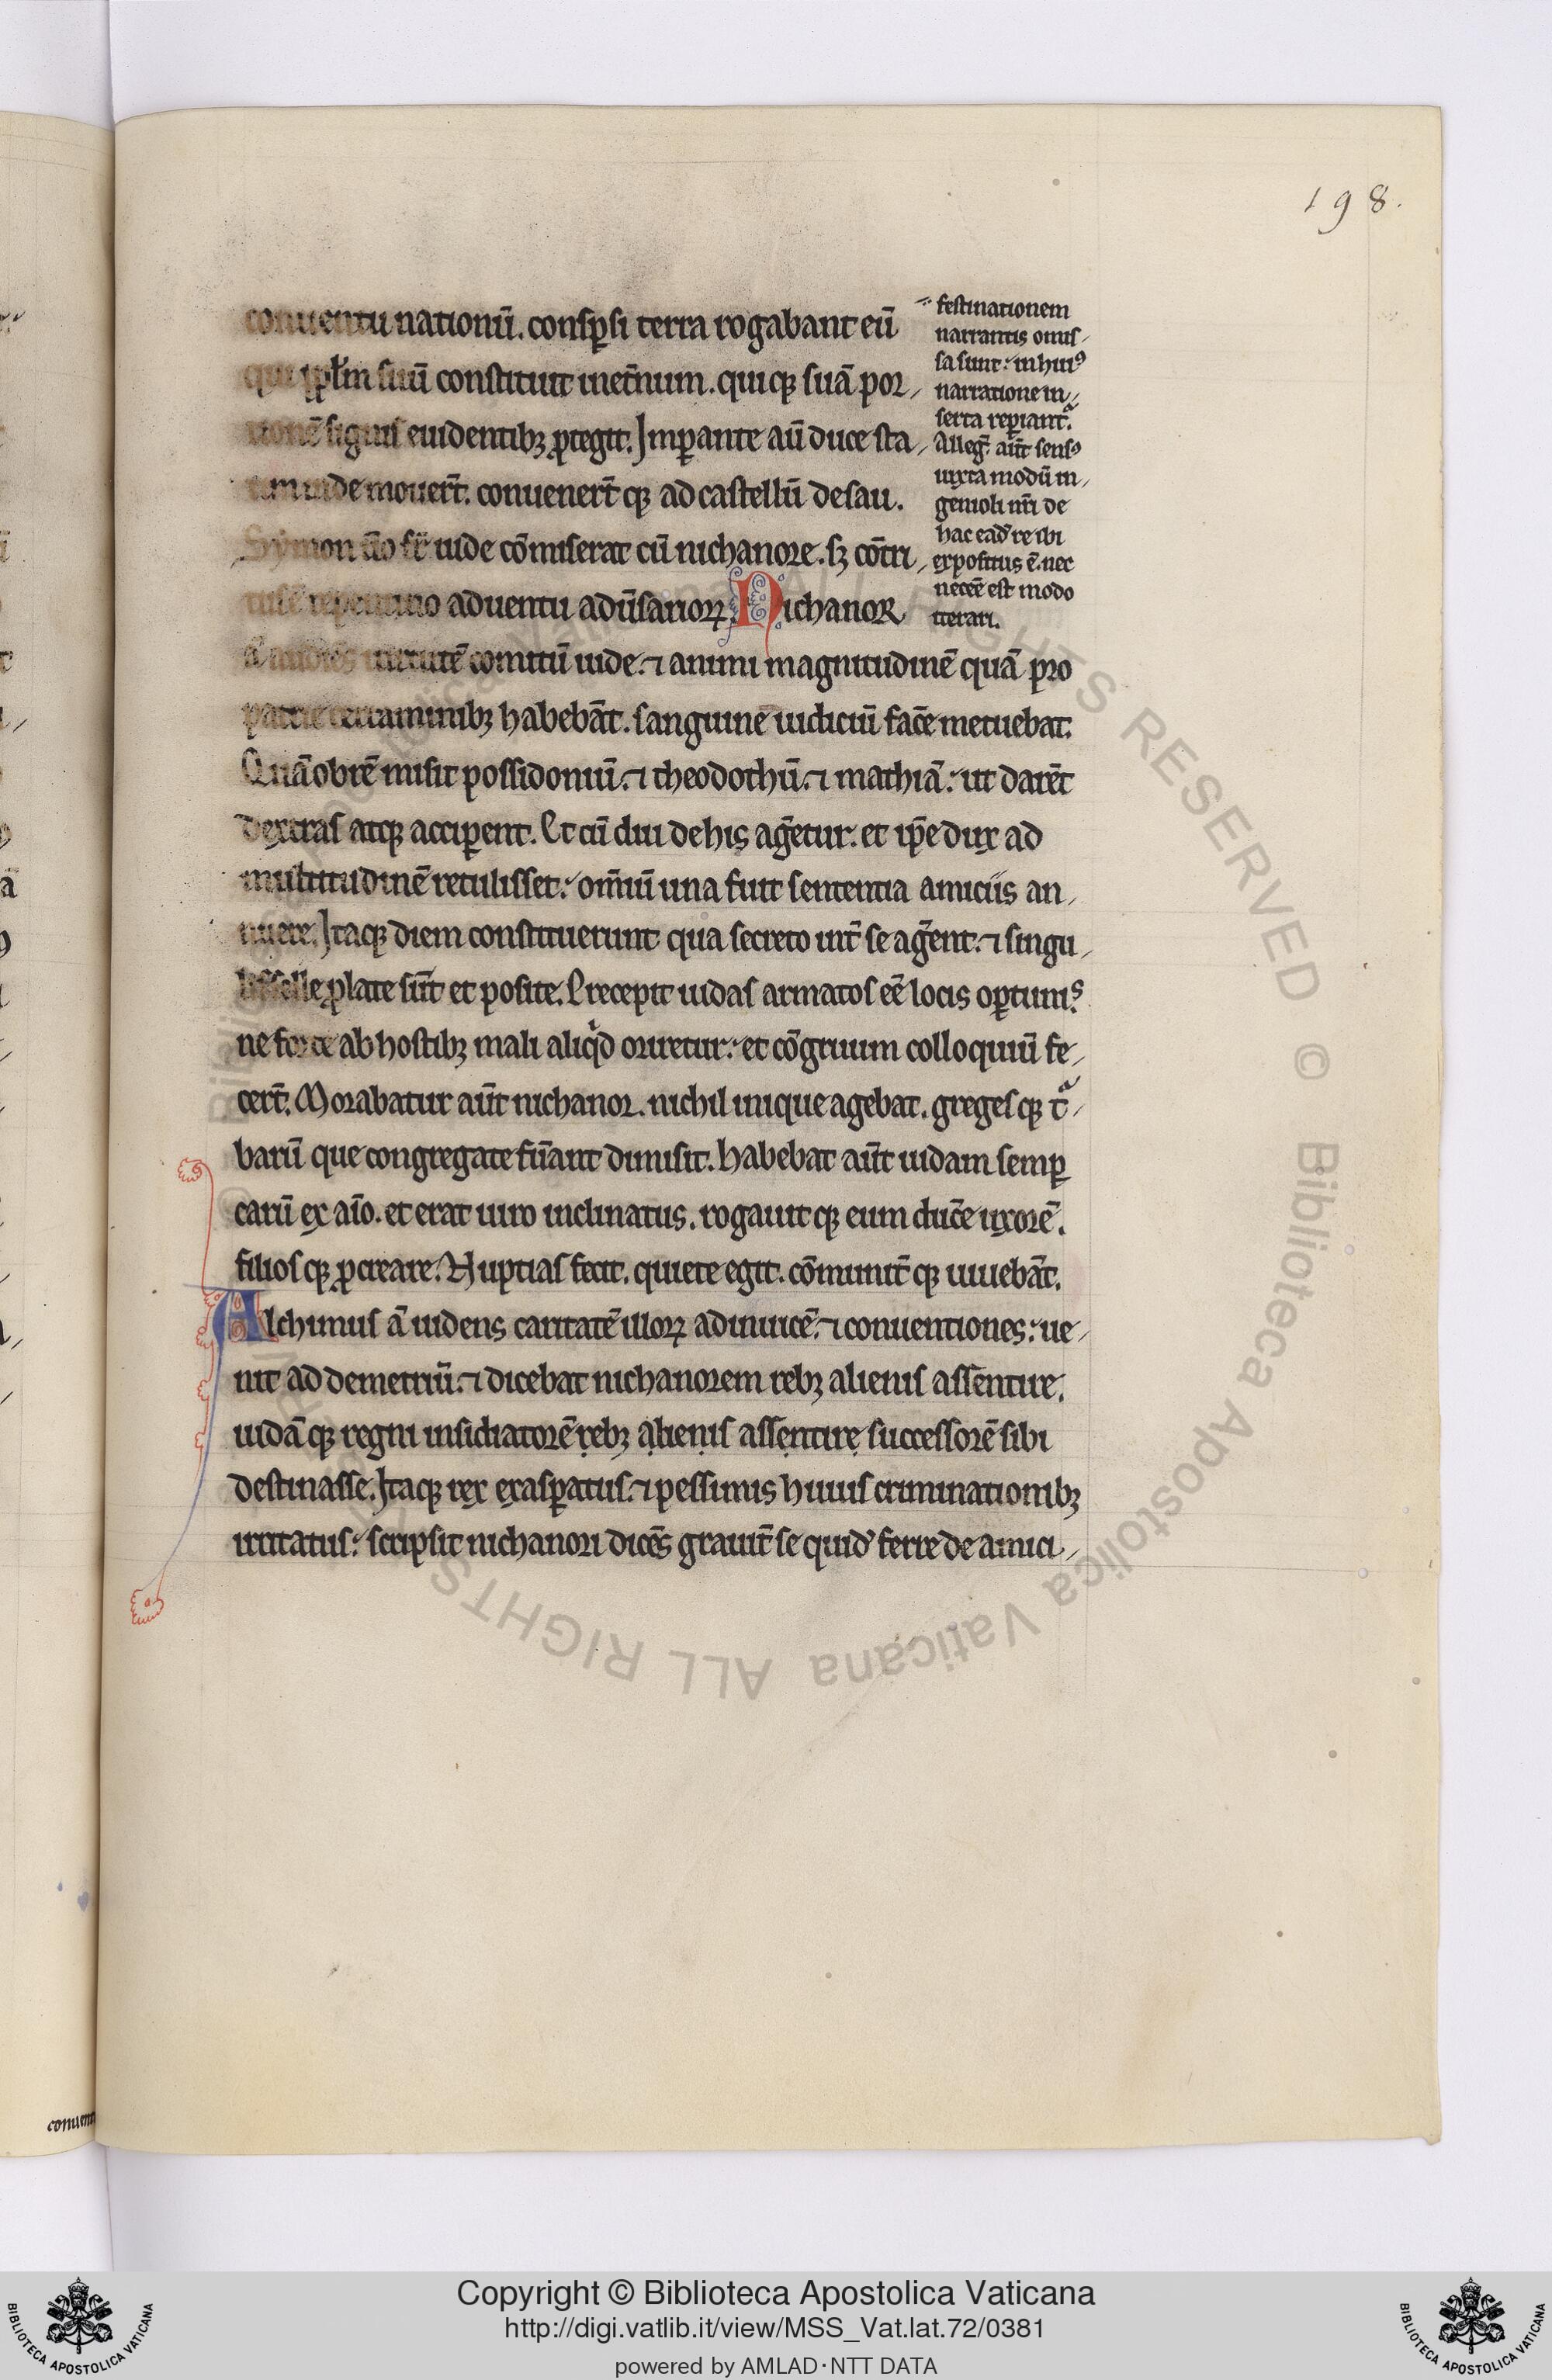 198.
conuentu nationū. conspsi terra rogabant eū
qui ppl̄m suū constituit inet̄num. quiq; suā por
tionē signis euidentibꝫ ꝓtegit. Inꝑante aū duce sta
tim inde mouer̄t. conuener̄t q; ad castellū desau.
Symon ū̄o fr̄ iude cōmiserat cū nichanore. sꝫ cōtri
tus ē repentino aduentu adūsarioꝝ. Nichanor
ā audiēs uirtutē comitū iude. ⁊ animi magnitudinē quā pro
patrie certaminibꝫ habebāt. sanguine iudiciū facē metuebat.
Quāobrē misit possidoniū. ⁊ theodothū. ⁊ mathiā. ut darēt
dextras atq; acciꝑent. Et cū diu de his aḡetur. et ip̄e dux ad
multitudinē retulisset. om̄iū una fuit sententia amiciis an
nuere. Itaq; diem constituerunt qua secreto int̄ se aḡent. ⁊ singu
lis selle ꝓlate sūt et posite. Precepit iudas armatos eē locis oꝑtunis
ne forte ab hostibꝫ mali aliqd oriretur. et cōgruum colloquiū fe
cer̄t. Morabatur aūt nichanor. nichil inique agebat. gregesq; t̄
barū que congregate fūant dimisit. habebat aūt iudam semꝑ
carū ex aīo. et erat uiro inclinatus. rogauitq; eum ducē uxorē.
filiosq; ꝓcreare. Nuptias fecit. quiete egit. cōmunit̄ q; uiuebāt.
Alchimus ā uidens caritatē illoꝝ adinuicē. ⁊ conuentiones. ue
nit ad demetriū. ⁊ dicebat nichanorem rebꝫ alienis assentire.
iudāq; regni insidiatorē rebꝫ alienis assentire successorē sibi
destinasse. Itaq; rex exasꝑatus. ⁊ pessimis huius criminationibꝫ
irritatus. scripsit nichanori dicēs grauit̄ se quid' ferre de amici
festinationem
narrantis omis
sa sunt. in huiꝰ
narratione in
serta reꝑiant̄.
Alleg̃. aūt sensꝰ
iuxta modū in
genioli nr̄i de
hac ead' re ibi
expositus ē. nec
necē est modo
iterari.
conuent
Copyright © Biblioteca Apostolica Vaticana
http://digi.vatlib.it/view/MSS_Vat.lat.72/0381
powered by AMLAD·NTT DATA